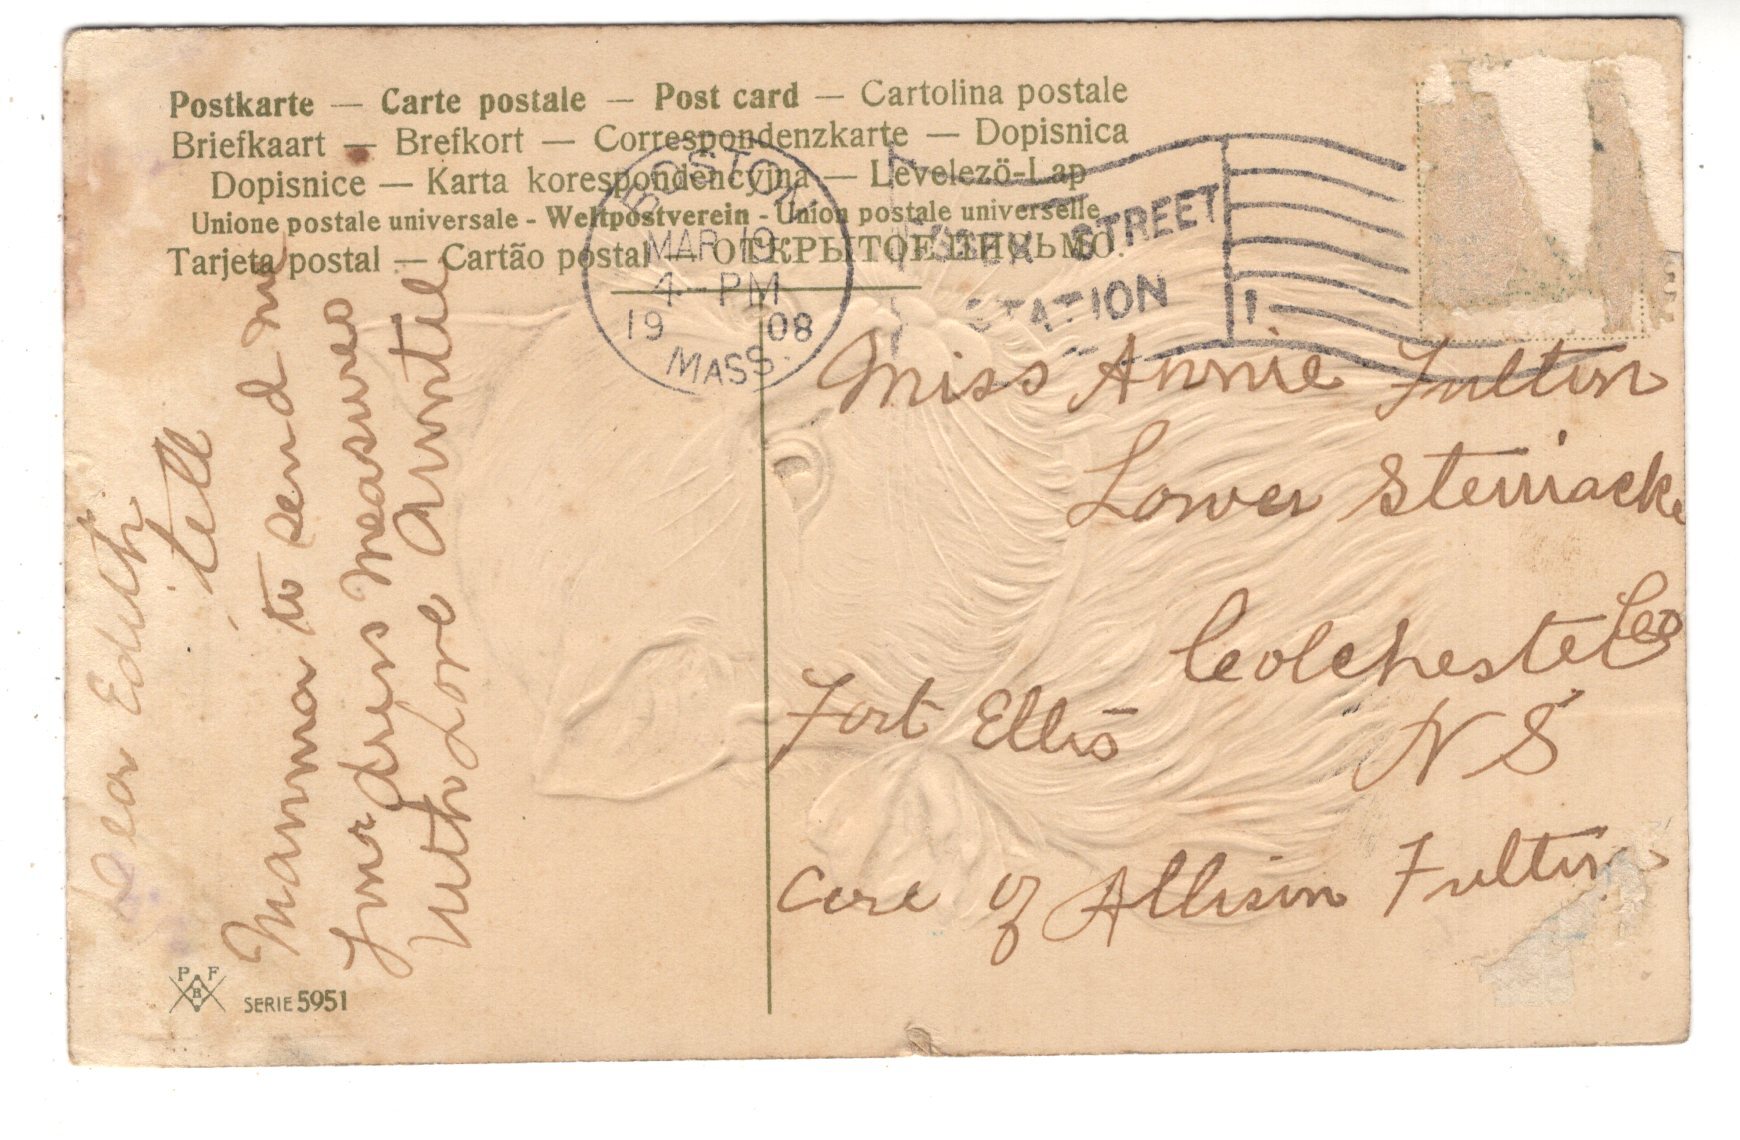 Postkarte — Carte postale — Post card — Cartolina postale
Briefkaart — Brefkort — Correspondenzkarte — Dopisnica
Dopisnice — Karta korespondencyjna — Levelezö-Lap
Unione postale universale - Weltpostverein - Union postale universelle
Tarjeta postal — Cartão postal — ОТКРЫТОЕ ПИСЬМО.
BOSTON
MAR 19
4-PM
1908
MASS.
ESSEX STREET
STATION
1
Dear Edith
tell
Mamma to send me
your dress measures
With Love Auntie
Miss Annie Fulton
Lower Sterriacke
Colchester Co
Fort Ellis
N S
Care of Allison Fulton
P F
B
SERIE 5951